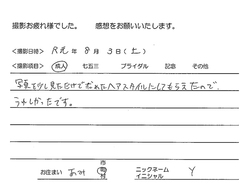 撮影お疲れ様でした。 感想をお願いいたします。
<撮影日時> R元年 8月 3日(土)
<撮影項目> 成人 七五三 ブライダル 記念 その他
写真を少し見ただけでおなじヘアスタイルにしてもらえたので、
うれしかったです。
お住まい あみ 市 町 村 ニックネーム イニシャル Y